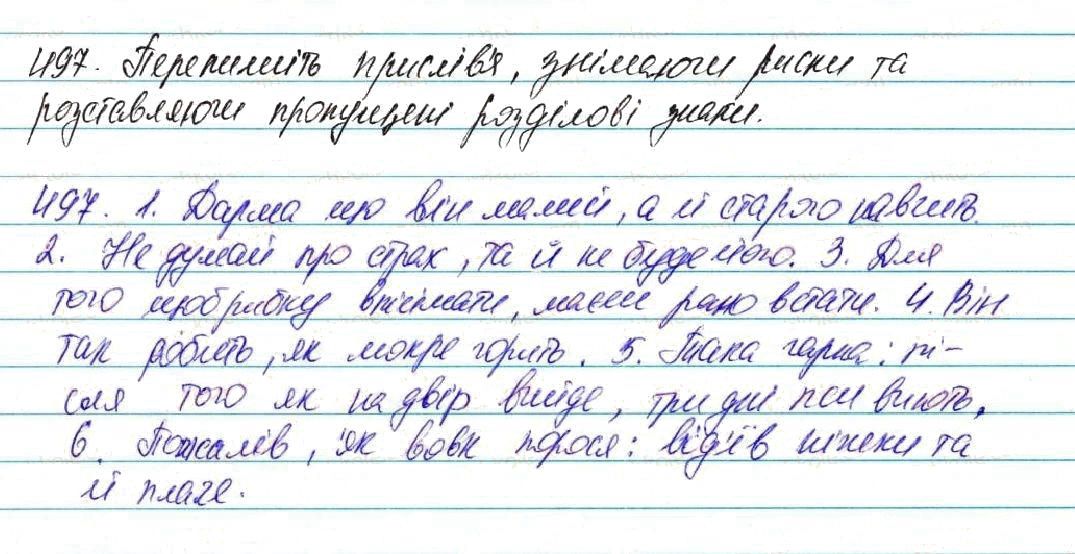 497. Перепишіть прислів'я, знімаючи риски та
розставляючи пропущені розділові знаки.
497. 1. Дарма що він малий, а й старого навчить.
2. Не думай про страх, та й не буде його. 3. Для
того щоб рибку впіймати, маєш рано встати. 4. Він
так робить, як мокре горить. 5. Така гарна: пі-
сля того як на двір вийде, три дні пси виють.
6. Пожалів, як вовк порося: від'їв ніжки та
й плаче.